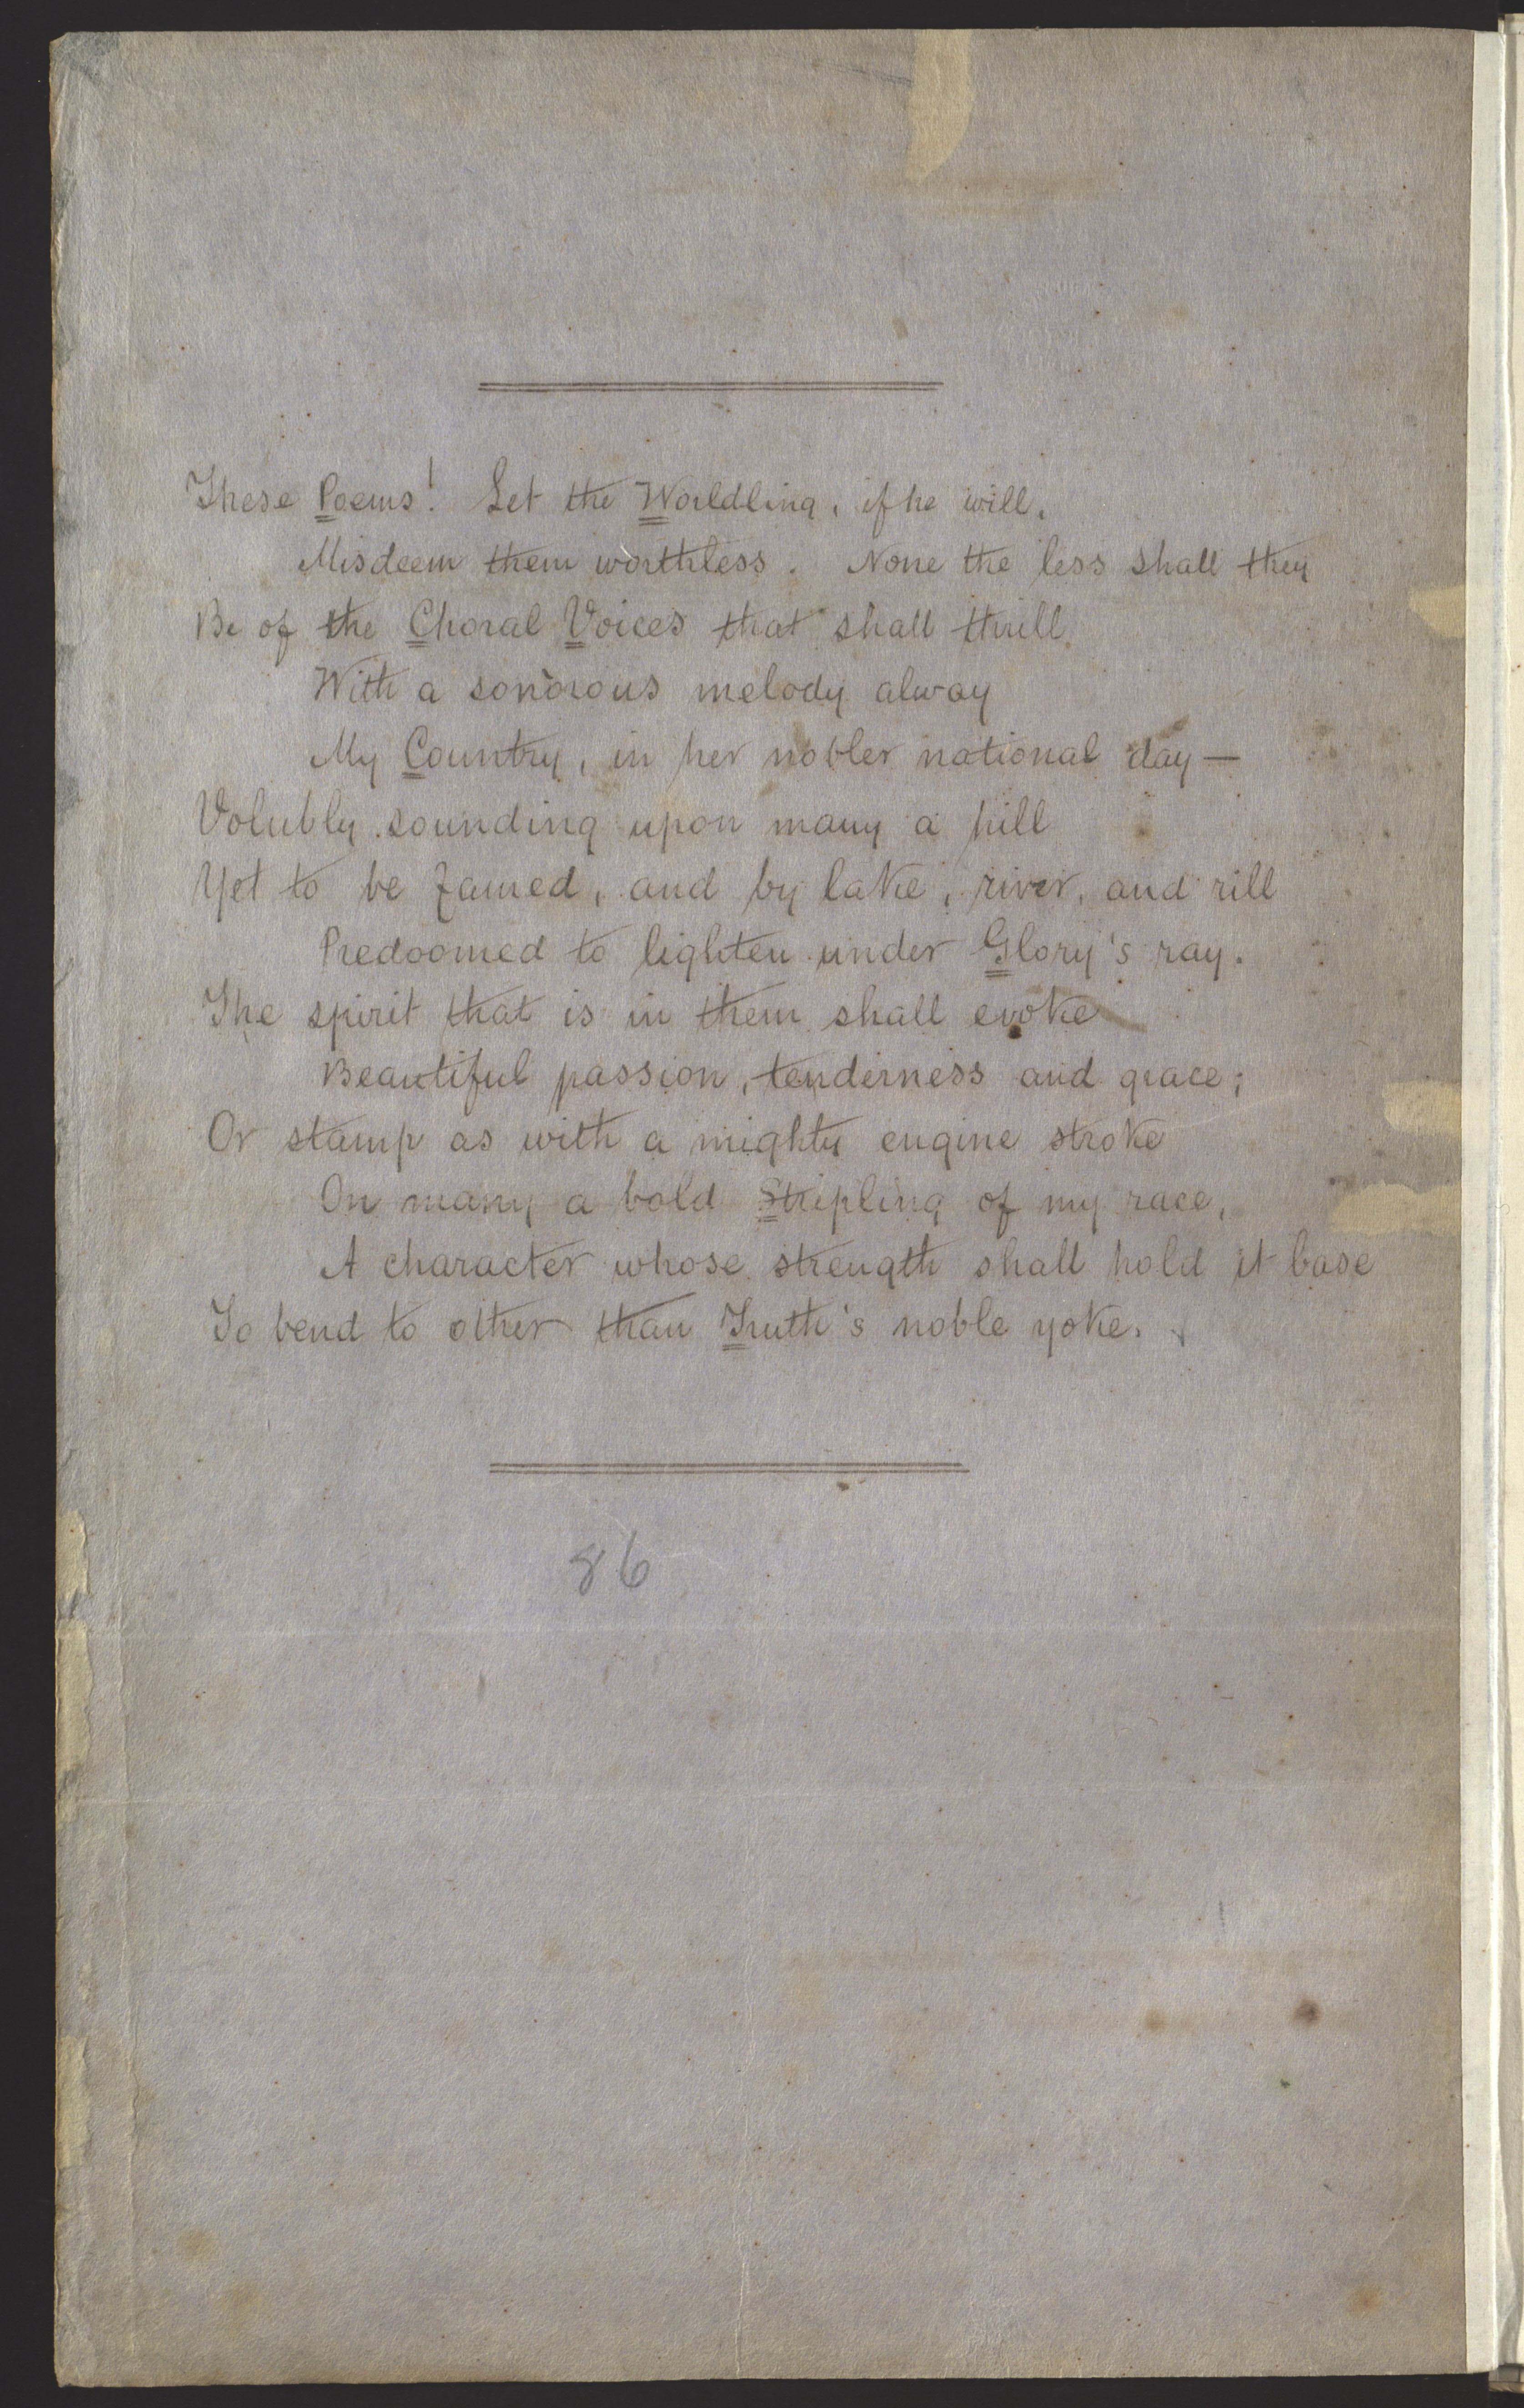 These Poems! Let the Worldling, if he will,
Misdeem them worthless. None the less shall they
Be of the Choral Voices that shall thrill,
With a sonorous melody alway
My Country, in her nobler national day—
Volubly sounding upon many a hill
Yet to be famed, and by lake, river, and rill
Predoomed to lighten under Glory's ray.
The spirit that is in them shall evoke
Beautiful passion, tenderness and grace;
Or stamp as with a mighty engine stroke
On many a bold Stripling of my race,
A character whose strength shall hold it base
To bend to other than Truth's noble yoke.
86